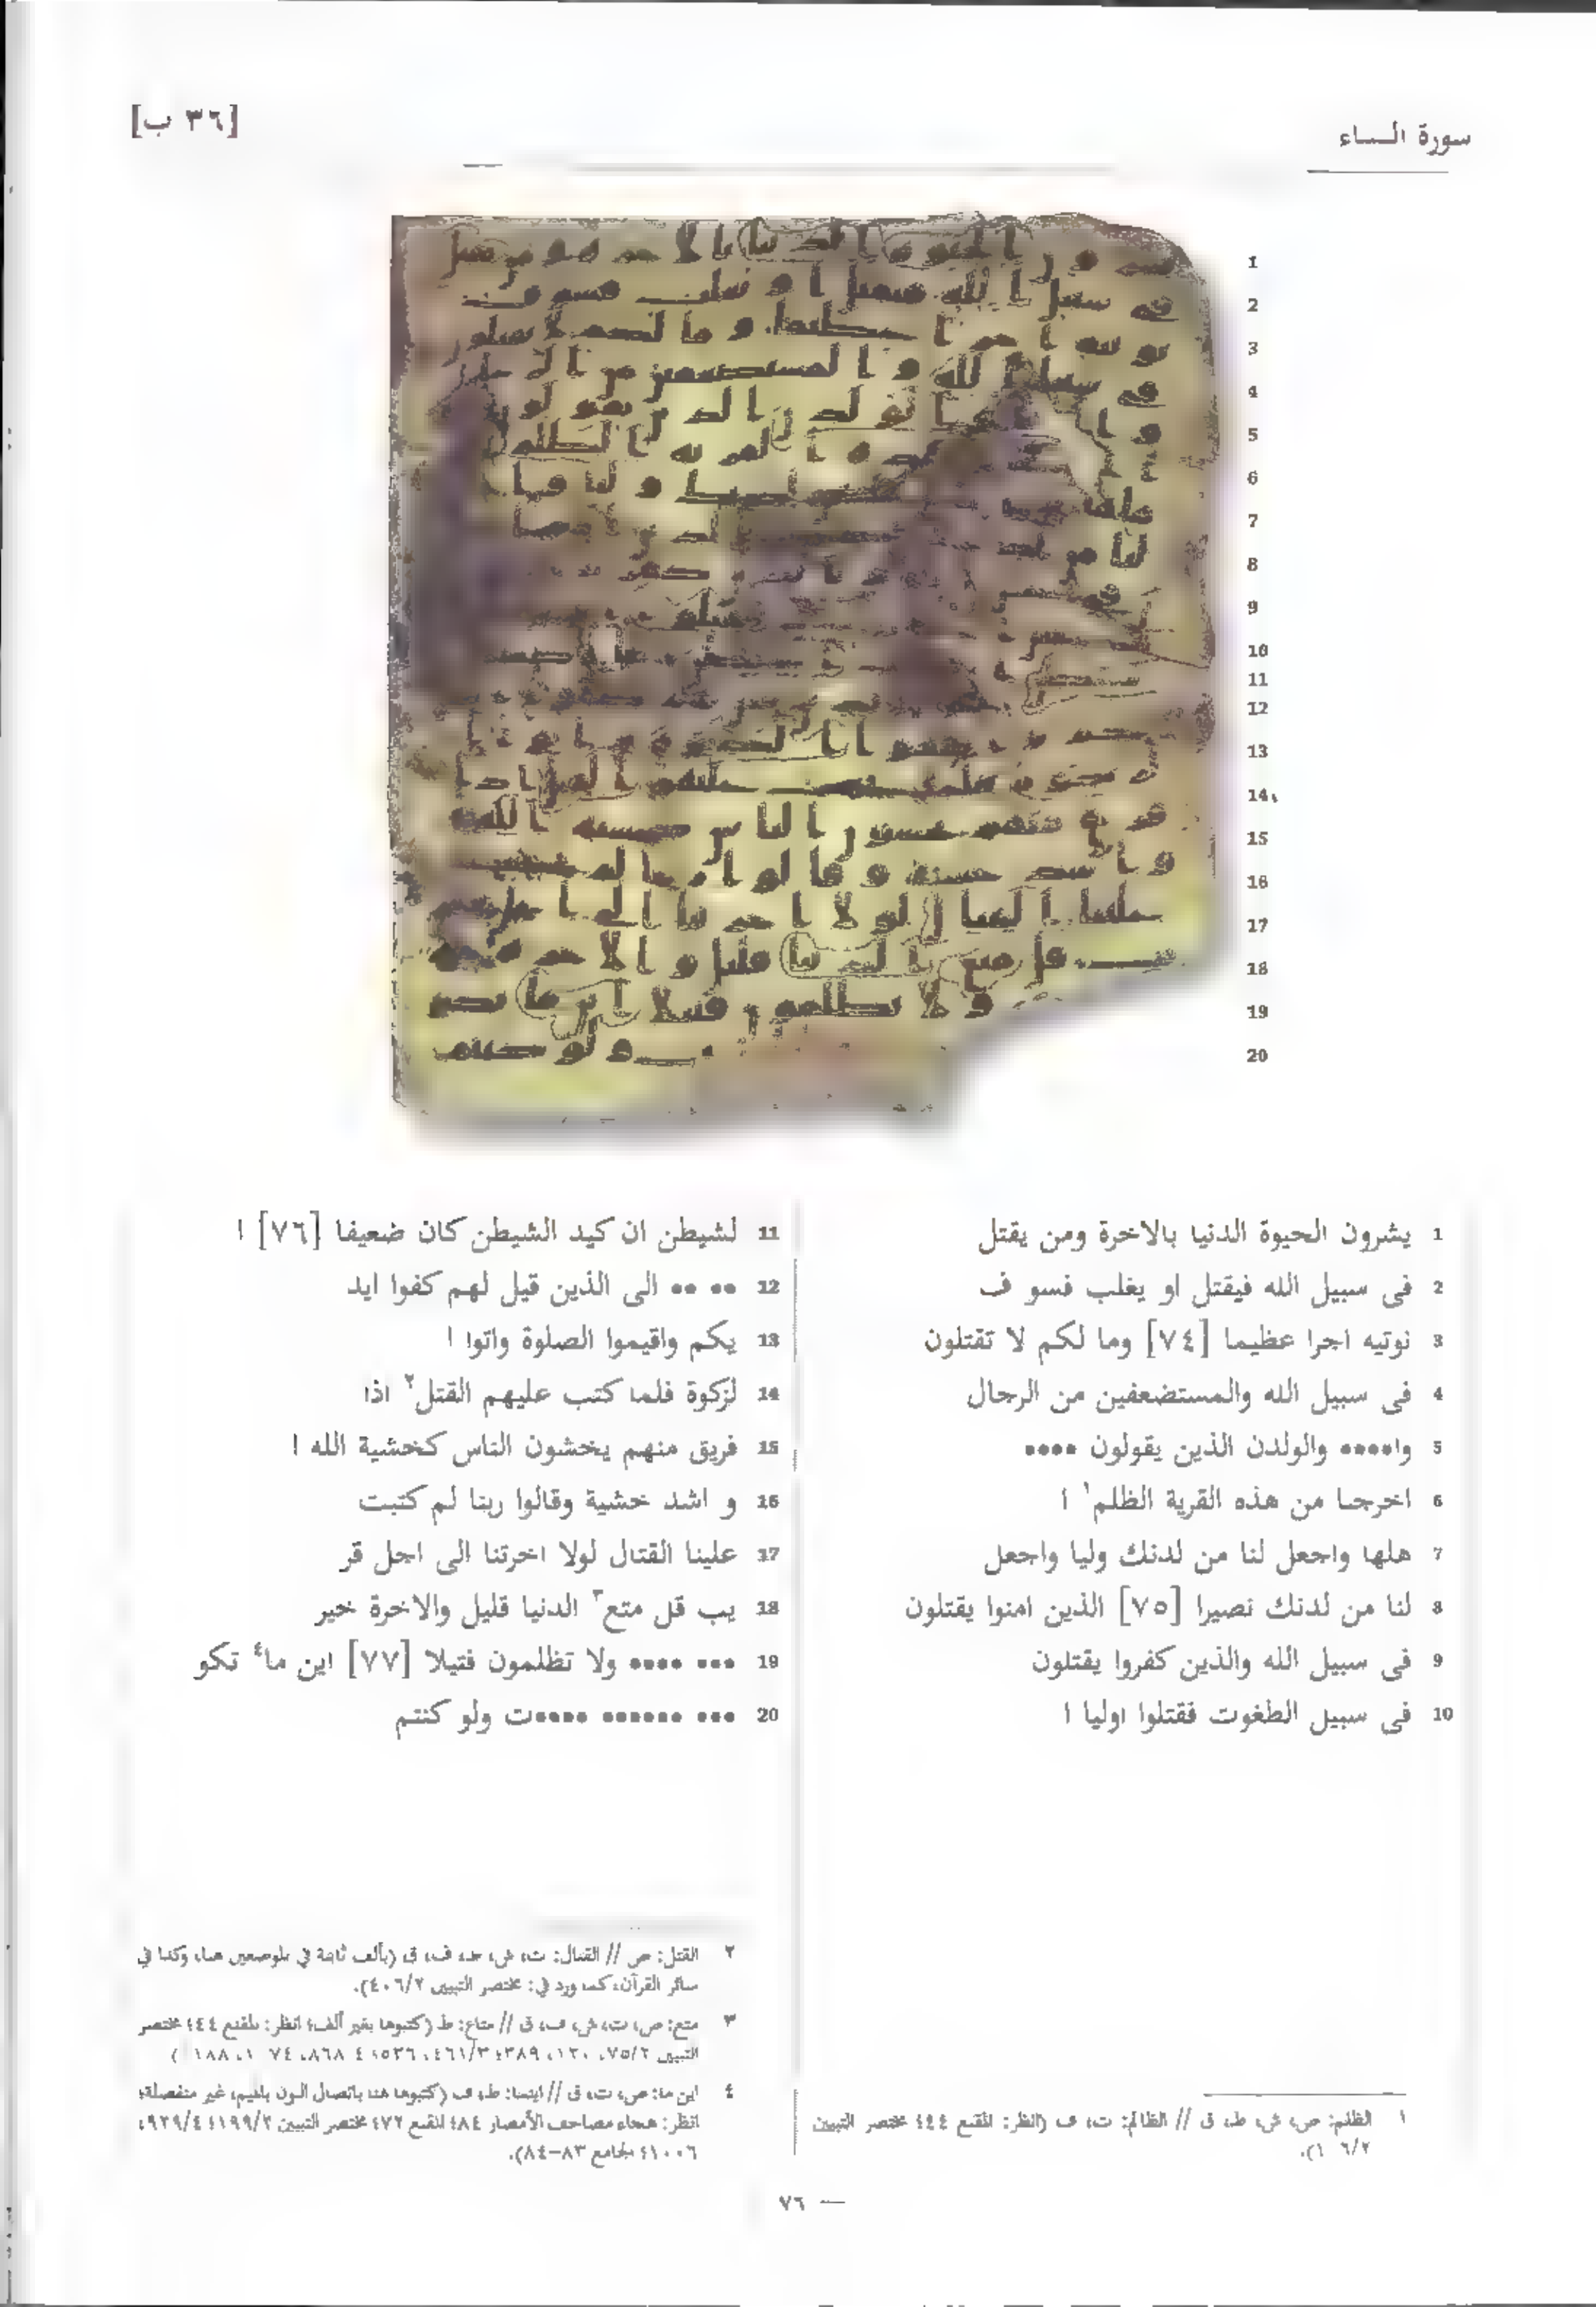 سورة الساء
[٣٦ ب]
1
2
3
4
5
6
7
8
9
10
11
12
13
14
15
16
17
18
19
20
1 يشرون الحيوة الدنيا بالاخرة ومن يقتل
2 فى سبيل الله فيقتل او يغلب فسو ف
3 نوتيه اجرا عظيما [٧٤] وما لكم لا تقتلون
4 فى سبيل الله والمستضعفين من الرجال
5 وا••••• والولدن الذين يقولون ••••
6 اخرجنا من هذه القرية الظلم١ ا
7 هلها واجعل لنا من لدنك وليا واجعل
8 لنا من لدنك نصيرا [٧٥] الذين امنوا يقتلون
9 فى سبيل الله والذين كفروا يقتلون
10 فى سبيل الطغوت فقتلوا اوليا ا
11 لشيطن ان كيد الشيطن كان ضعيفا [٧٦] ا
12 •• •• الى الذين قيل لهم كفوا ايد
13 يكم واقيموا الصلوة واتوا ا
14 لزكوة فلما كتب عليهم القتل٢ اذا
15 فريق منهم يخشون الناس كخشية الله ا
16 و اشد خشية وقالوا ربنا لم كتبت
17 علينا القتال لولا اخرتنا الى اجل قر
18 يب قل متع٣ الدنيا قليل والاخرة خير
19 ••• •••• ولا تظلمون فتيلا [٧٧] اين ما٤ تكو
20 ••• •••••• ••••ت ولو كنتم
١ الظلم: ص، ش، ط، ق // الظالم: ت، ف (انظر: المقنع ٤٤؛ مختصر التبيين
٢ القتل: ص // القتال: ت، ش، ط، ف، ق (بألف ثابتة في الموضعين هنا، وكذا في
سائر القرآن، كما ورد في: مختصر التبيين ٤٠٦/٢).
٣ متع: ص، ت، ش، ف، ق // متاع: ط (كتبوها بغير ألف؛ انظر: المقنع ٤٤؛ مختصر
٤ اين ما: ص، ت، ق // اينما: ط، ف (كتبوها هنا باتصال النون بالميم، غير منفصلة؛
انظر: هجاء مصاحف الأمصار ٨٤؛ المقنع ٧٢؛ مختصر التبيين ١٩٩/٢؛ ٩٢٩/٤،
١٠٠٦؛ الجامع ٨٣–٨٤).
— ٧٦